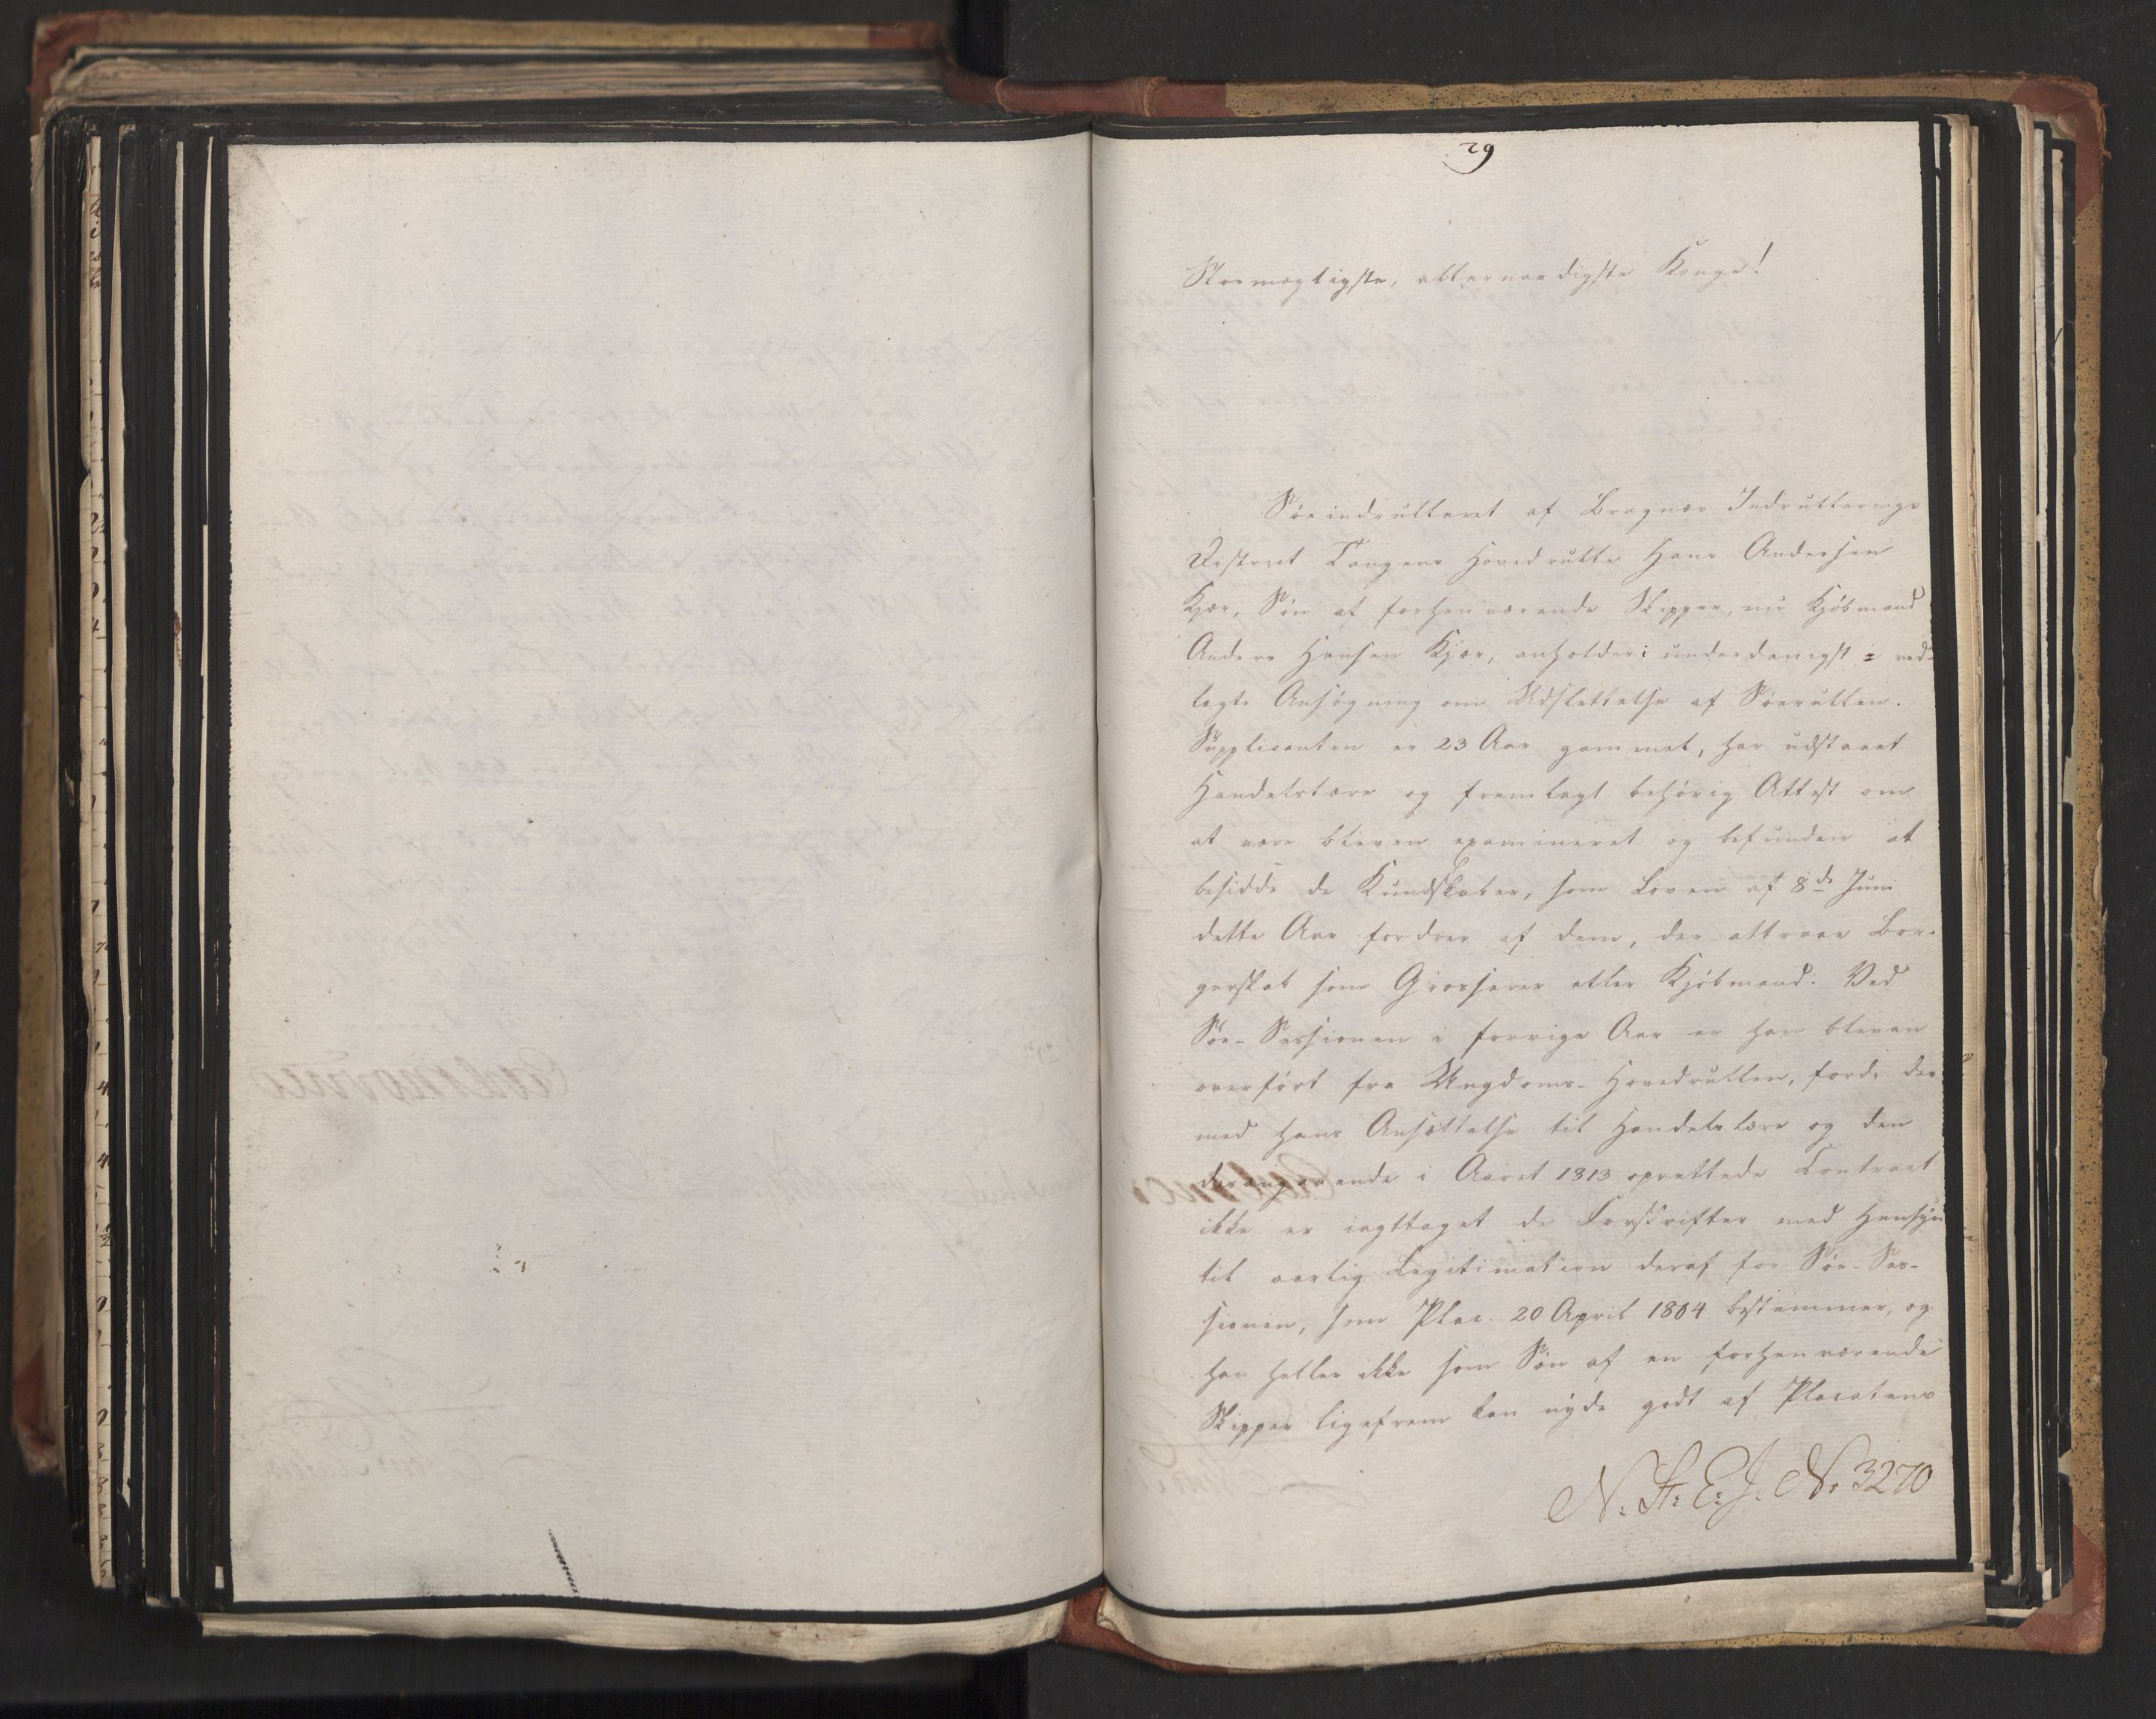 29
Stormægtigste, allernaadigste Konge!
Søeindrulleret af Bragnæs Indrullerings
District Tangens Hovedrulle Hans Andersen
Kjær, Søn af forhenværende Skipper, nu Kjøbmand
Anders Hansen Kjær, anholder i underdanigst ved-
lagte Ansøgning om Udslettelse af Søerullen.
Supplicanten er 23 Aar gammel, har udstaaet
Handelslære og fremlagt behørig Attest om
at være bleven examineret og befunden at
besidde de Kundskaber, som Loven af 8de Juni
dette Aar fordrer af dem, der attraae Bor-
gerskab som Grosserer eller Kjøbmand. Ved
Søe-Sessionen i forrige Aar er han bleven
overført fra Ungdoms-Hovedrullen, fordi der
med Hans Ansættelse til Handelslære og den
desangaaende i Aaret 1813 oprettede Contract
ikke er iagttaget de Forskrifter med Hensyn
til aarlig Legitimation deraf for Søe-Ses-
sionen, som Plac. 20 April 1804 bestemmer, og
han heller ikke som Søn af en forhenværende
Skipper ligefrem kan nyde godt af Placatens
N: St: E: J. No 3270